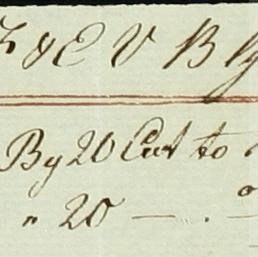 & E V B
By 20 Cut to
" 20 — . —